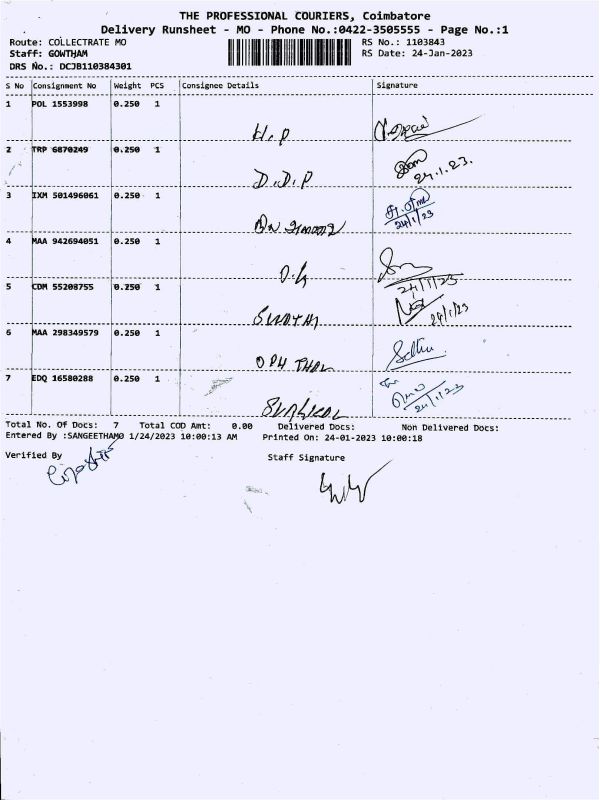 THE PROFESSIONAL COURIERS, Coimbatore
Delivery Runsheet - MO - Phone No.:0422-3505555 - Page No.:1
Route: COLLECTRATE MO RS No.: 1103843
Staff: GOWTHAM RS Date: 24-Jan-2023
DRS No.: DCJB110384301
S No Consignment No Weight PCS Consignee Details Signature
1 POL 1553998 0.250 1
H.P
2 TRP 6870249 0.250 1
D.D.P 24.1.23.
3 IXM 501496061 0.250 1
24/1/23
4 MAA 942694051 0.250 1
24/1/23
5 CDM 55208755 0.250 1
SWATHI 24/1/23
6 MAA 298349579 0.250 1
OPH THAL
7 EDQ 16580288 0.250 1
SURGICAL 24/1/23
Total No. Of Docs: 7 Total COD Amt: 0.00 Delivered Docs: Non Delivered Docs:
Entered By :SANGEETHAMO 1/24/2023 10:00:13 AM Printed On: 24-01-2023 10:00:18
Verified By Staff Signature